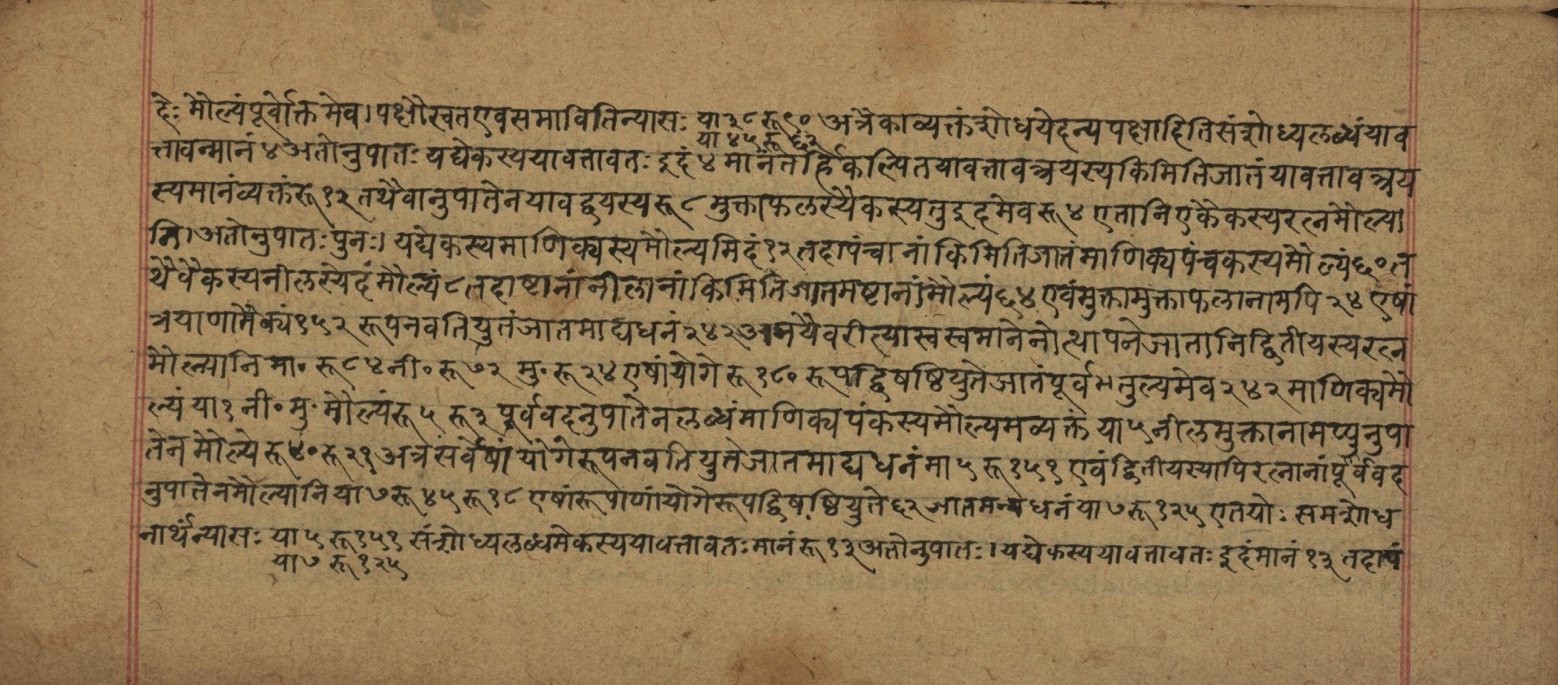 देः मौल्यंपूर्वोक्तमेव।पक्षौस्वतएवसमावितिन्यासः या३८रू९० अत्रैकाव्यक्तंशोधयेदन्यपक्षादितिसंशोध्यलब्धंयाव
या४५रू६२
त्तावन्मानं४अतोनुपातः यद्येकस्ययावत्तावतः इदं४मानंतर्हिकल्पितयावत्तावत्त्रयस्यकिमितिजातंयावत्तावत्त्रय
स्यमानंव्यक्तंरू१२तथैवानुपातेनयावद्द्वयस्यरू८मुक्ताफलस्यैकस्यतुइदमेवरू४एतानिएकैकस्यरत्नमौल्या
नि।अतोनुपातःपुनः। यद्येकस्यमाणिक्यस्यमौल्यमिदं१२तदापंचानांकिमितिजातंमाणिक्यपंचकस्यमौल्यं६०त
थैवैकस्यनीलस्येदंमौल्यं८तदाष्टानांनीलानांकिमितिजातमष्टानांमौल्यं६४एवंमुक्तामुक्ताफलानामपि२४एषां
त्रयाणामैक्यं१५२रूपनवतियुतंजातमाद्यधनं२४२अनयैवरीत्यास्वस्वमानेनोत्थापनेजातानिद्वितीयस्यरत्न
मौल्यानिमा॰रू८४नी॰रू७२ मु॰रू२४एषांयोगेरू१८०रूपद्विषष्ठियुतेजातंपूर्वतुल्यमेव२४२माणिक्यमौ
ल्यंया१नी॰मु॰मौल्यंरू५ रू३पूर्ववदनुपातेनलब्धंमाणिक्यपंकस्यमौल्यमव्यक्तंया५नीलमुक्तानामप्युनुपा
तेनमौल्येरू४०रू२१अत्रसर्वेषांयोगेरूपनवतियुतेजातमाद्यधनंमा५रू१५१एवंद्वितीयस्यापिरत्नानांपूर्ववद
नुपातेनमौल्यानिया७रू४५रू१८एषांरूपाणांयोगेरूपद्विषष्ठियुते६२जातमन्यधनंया७रू१२५एतयोः समशोध
नार्थंन्यासः या५रू१५१संशोध्यलब्धमेकस्ययावत्तावतःमानंरू१३अतोनुपातः।यद्येकस्ययावत्तावतःइदंमानं१३तदापं
या७रू१२५